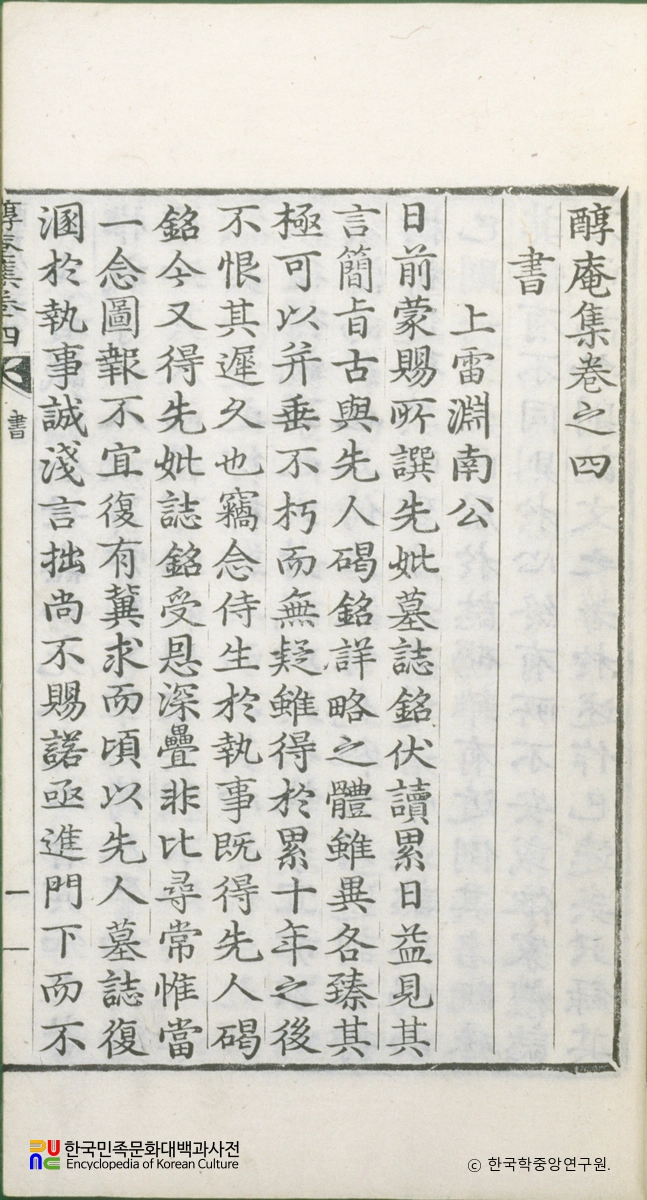 醇庵集卷之四
書
上雷淵南公
日前蒙賜所譔先妣墓誌銘伏讀累日益見其
言簡旨古與先人碣銘詳略之體雖異各臻其
極可以并垂不朽而無疑雖得於累十年之後
不恨其遲久也竊念侍生於執事既得先人碣
銘今又得先妣誌銘受恩深疊非比尋常惟當
一念圖報不宜復有冀求而頃以先人墓誌復
溷於執事誠淺言拙尚不賜諾亟進門下而不
醇庵集卷四
書
一
한국민족문화대백과사전
Encyclopedia of Korean Culture
© 한국학중앙연구원.